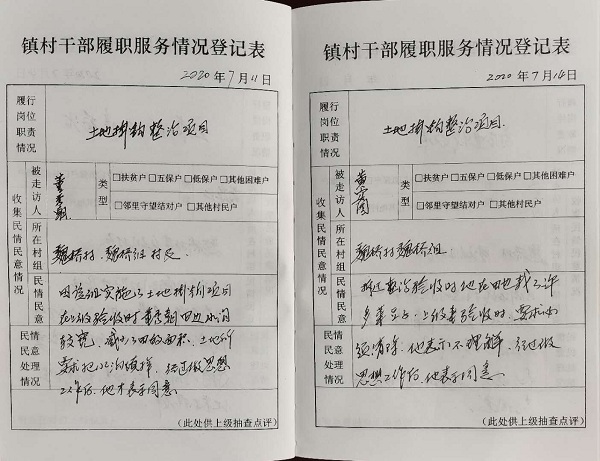 镇村干部履职服务情况登记表
2020年7月11日
履行岗位职责情况
土地挂钩整治项目
收集民情民意情况
被走访人
董
类型
□扶贫户 □五保户 □低保户 □其他困难户
□邻里守望结对户 □其他村民户
所在村组
魏桥村、魏桥组村民
民情民意
因该组实施的土地挂钩项目
在上级验收时董秀朝田边水沟
民情民意处理情况
较宽,减少了田的面积,土地所
要求把水沟填掉,经过做思想
工作后,他才表示同意
(此处供上级抽查点评)
镇村干部履职服务情况登记表
2020年7月14日
履行岗位职责情况
土地挂钩整治项目
收集民情民意情况
被走访人
类型
□扶贫户 □五保户 □低保户 □其他困难户
□邻里守望结对户 □其他村民户
所在村组
魏桥村魏桥组
民情民意
拆迁整治验收时他在田边栽了许
多 上级来验收时,要求必
民情民意处理情况
须清除,他表示不理解,经过做
思想工作后,他表示同意
(此处供上级抽查点评)